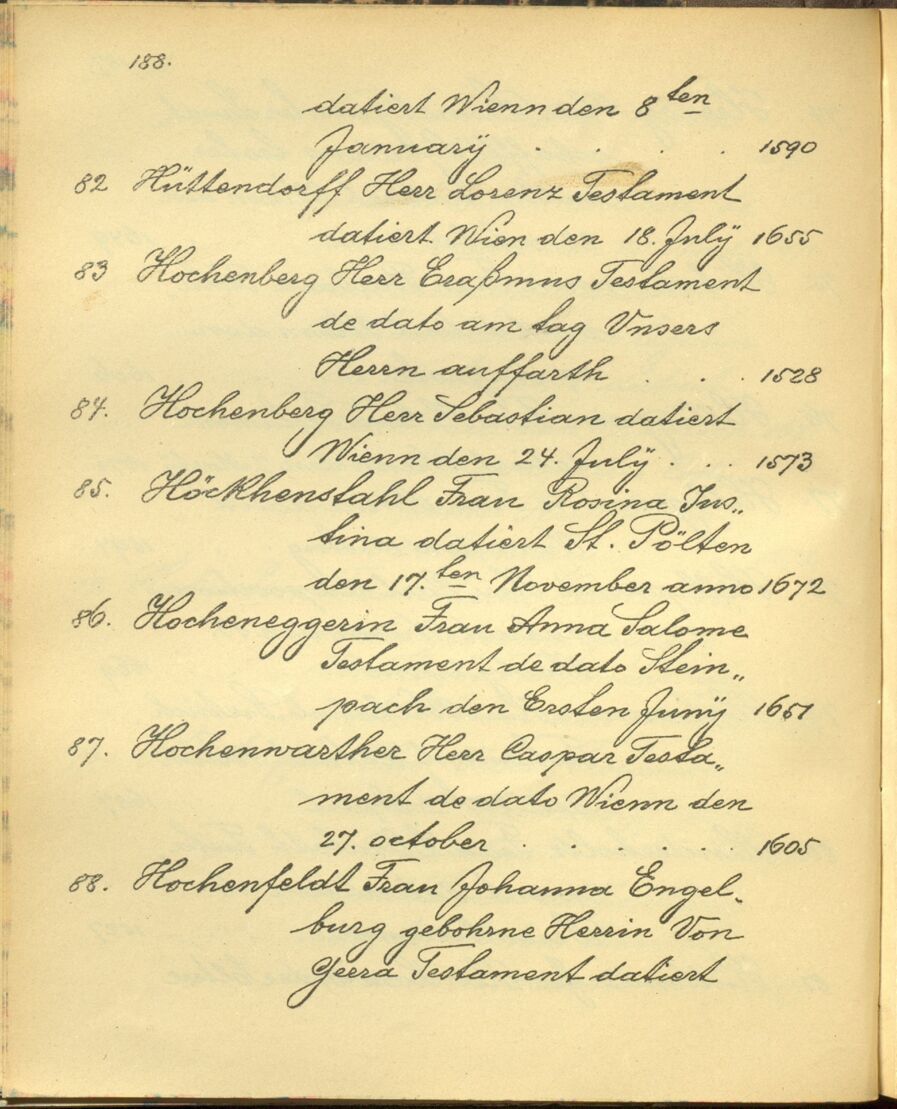 188.
datiert Wienn den 8ten
Januarÿ . . . . 1590
82 Hüttendorff Herr Lorenz Testament
datiert Wien den 18. Julÿ 1655
83 Hochenberg Herr Eraßmus Testament
de dato am tag Vnsers
Herrn auffarth . . . 1528
84. Hochenberg Herr Sebastian datiert
Wienn den 24. Julÿ . . . 1573
85. Höckhenstahl Frau Rosina Jus„
tina datiert St. Pölten
den 17.ten November anno 1672
86. Hocheneggerin Frau Anna Salome
Testament de dato Stein„
pach den Ersten Junÿ 1651
87. Hochenwarther Herr Caspar Testa„
ment de dato Wienn den
27. october . . . . . . 1605
88. Hochenfeldt Frau Johanna Engel„
burg gebohrne Herrin Von
Geera Testament datiert